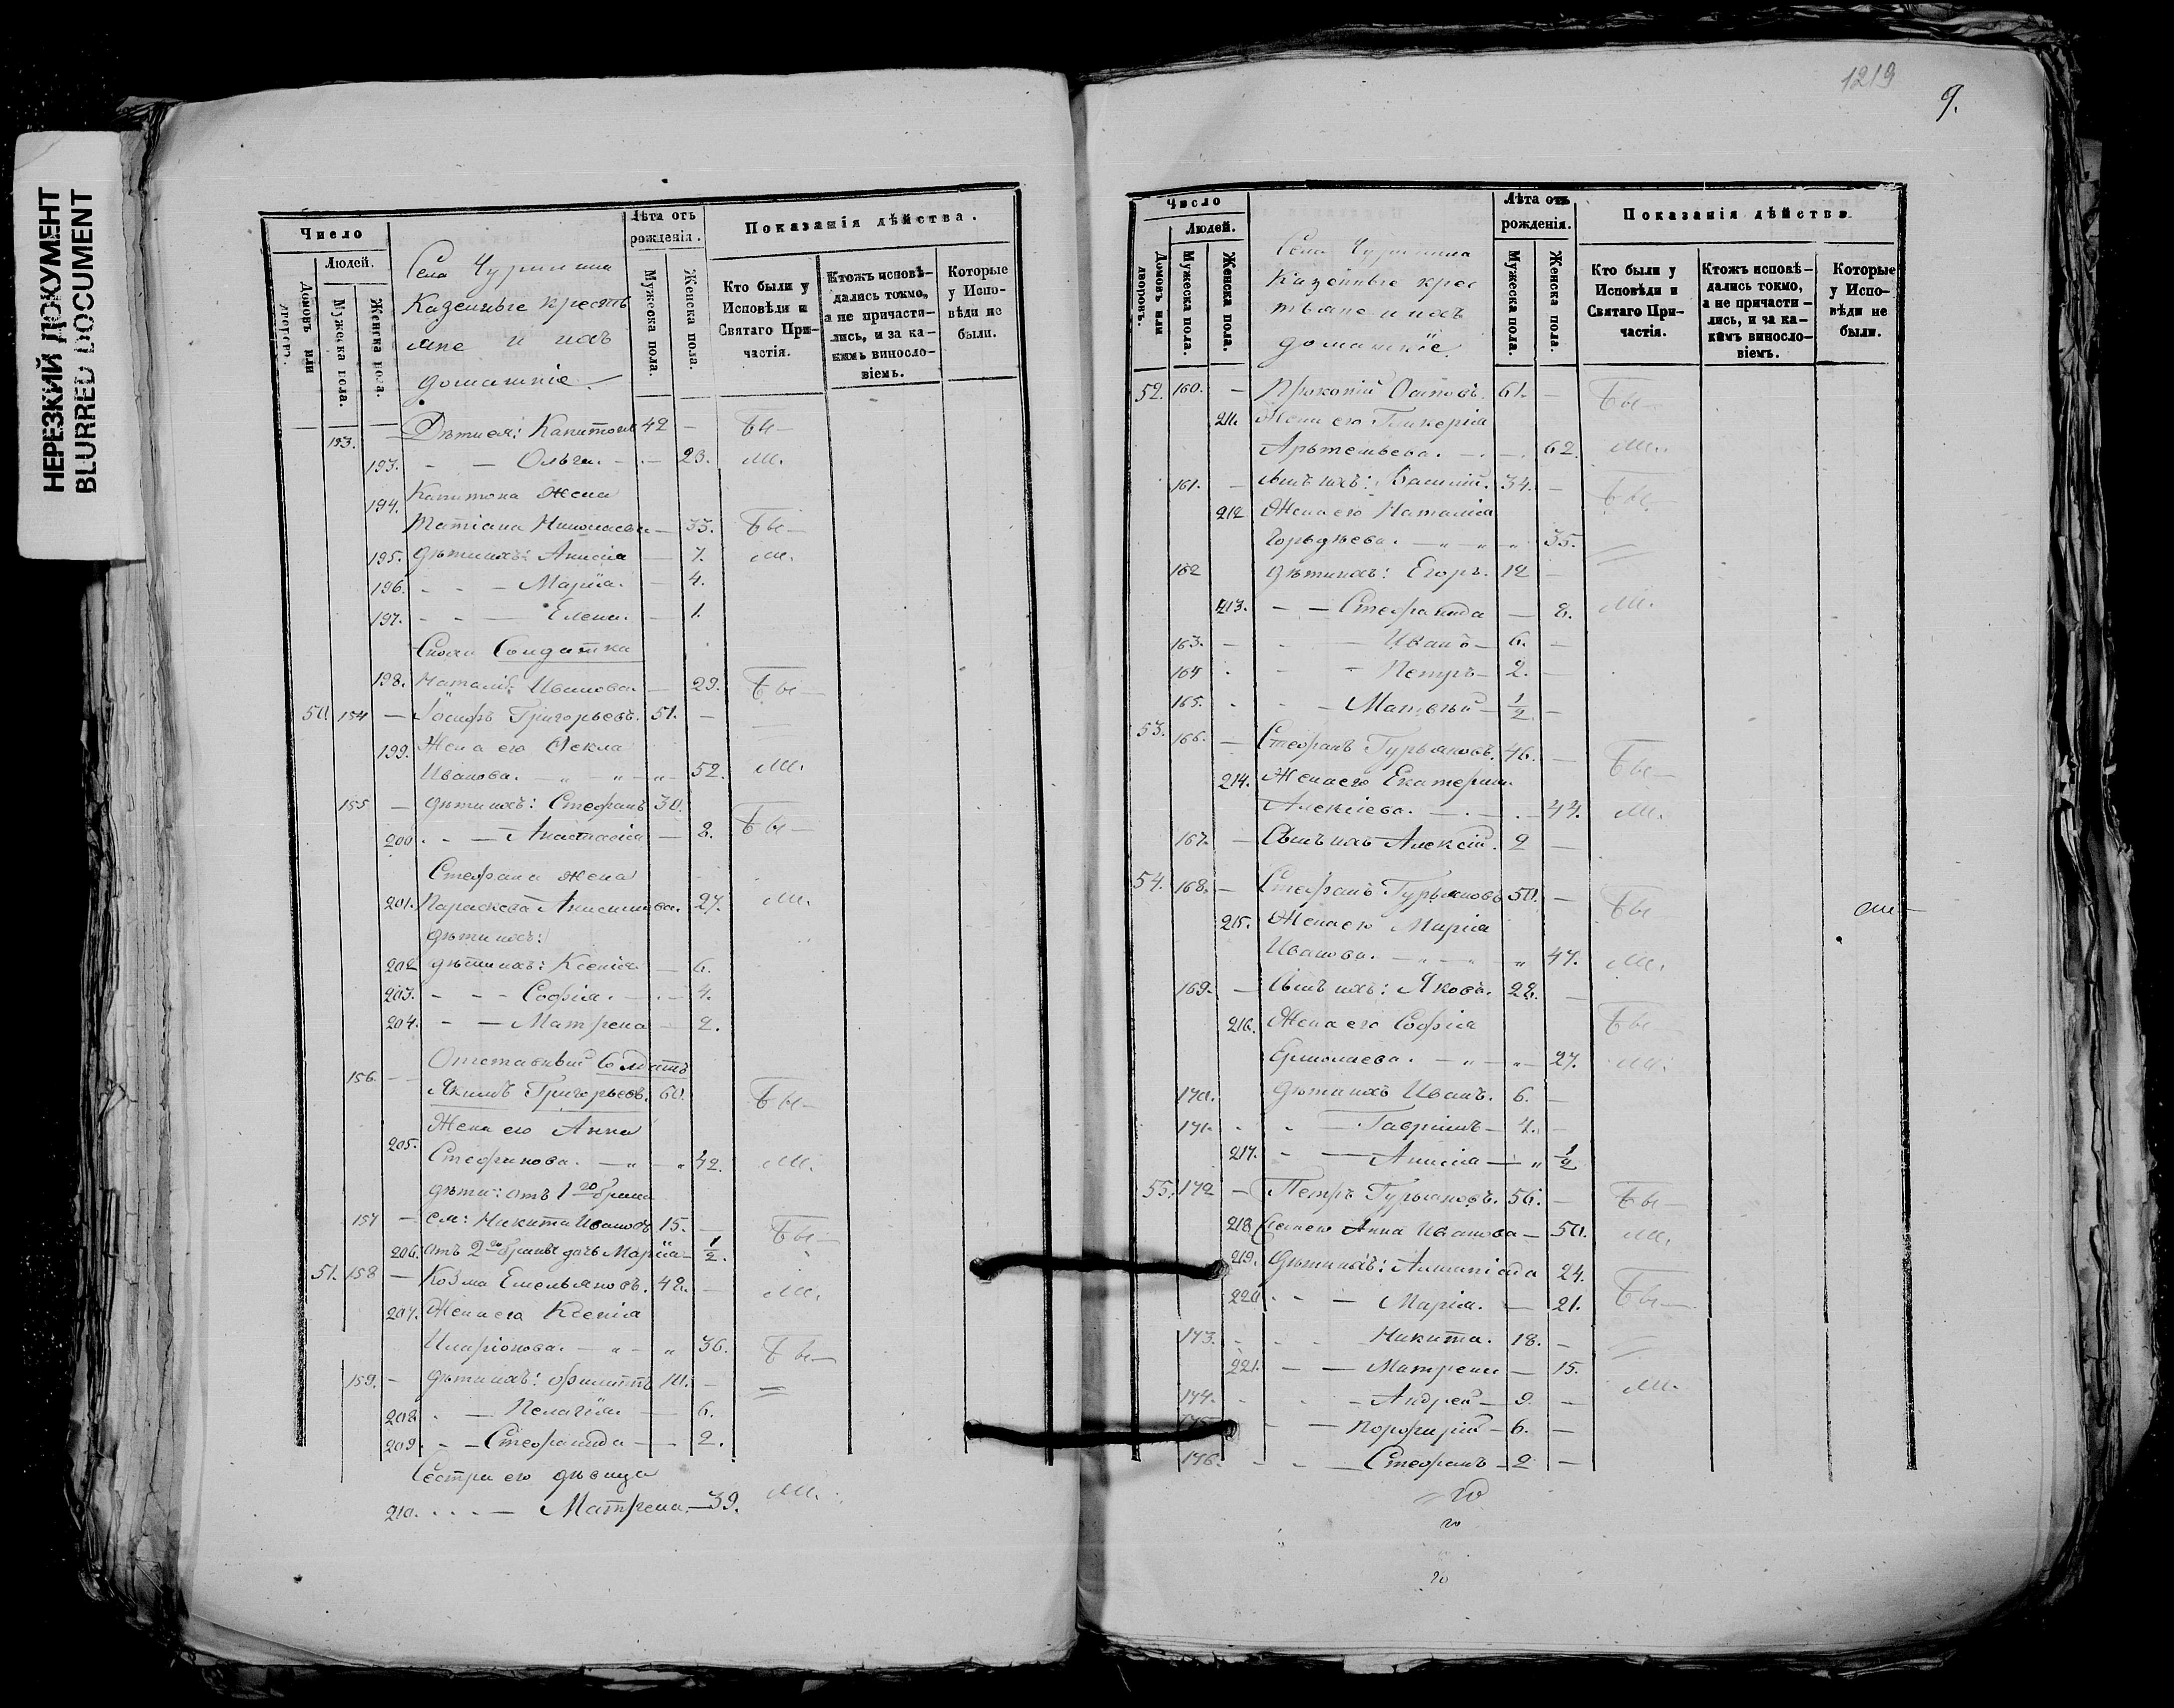 НЕРЕЗКИЙ ДОКУМЕНТ
BLURRED DOCUMENT
Число
Людей.
Домовъ или
Мужеска пола.
Женска пола.
Села Чурилина
Казенные кресть
яне и ихъ
домашніе
Лѣта отъ
рожденія.
Мужеска пола.
Женска пола.
Показанія дѣйства.
Кто были у
Исповѣди и
Святаго При-
частія.
Ктожъ исповѣ-
дались токмо,
а не причасти-
лись, и за ка-
кимъ виносло-
віемъ.
Которые
у Испо-
вѣди не
были.
153. — Дѣти ея: Капитонъ 42 — Бы—
193. - — Ольга. - — 23. ли.
194. Капитона жена
Татіана Николаева — 33. Бы—
195. дѣти ихъ: Анисіа — 7. ли.
196. - - — Маріа. — 4.
197. - - — Елена. — 1.
Солдатка
198. Наталіа Иванова. — 29. Бы—
50. 154 — Іосифъ Григорьевъ. 51. —
199. Жена его Ѳекла
Иванова. — „ — „ — 52. ли.
155 — дѣти ихъ: Стефанъ 30.
200 . - — Анастасіа — 8. Бы—
Стефана жена
201. Параскева Анисимова. 27. ли.
дѣти ихъ:
202 дѣти ихъ: Ксеніа — 6.
203. - - - Софіа. — 4.
204. - — Матрена — 2.
Отставный Солдатъ
156. — Якимъ Григорьевъ. 60. Бы—
Жена его Анна
205. Стефанова. — „ — „ 42. ли.
дѣти: отъ 1го брака
157 — Никита Ивановъ 15. — Бы—
206. отъ 2го брака дочь Маріа — 1/2.
51. 158 — Козма Емельяновъ. 48. — ли.
207. Жена его Ксеніа
Иларіонова. — „ — „ 36. Бы—
159. — дѣти ихъ: Филиппъ 10. — =
208 . — Пелагіа — 6.
209. - - Стефанида — — 2.
Сестра его дѣвица
210. . . . — Матрена. — 39. ли.
1219
9.
Число
Людей.
Домовъ или
дворовъ.
Мужеска пола.
Женска пола.
Села Чурилина
Казенные крес
тьяне и ихъ
домашніе.
Лѣта отъ
рожденія.
Мужеска пола.
Женска пола.
Показанія дѣйства
Кто были у
Исповѣди и
Святаго При-
частія.
Ктожъ исповѣ-
дались токмо,
а не причасти-
лись, и за ка-
кимъ виносло-
віемъ.
Которые
у Испо-
вѣди не
были.
52. 160. — Прокопій Осиповъ. 61. — Бы—
211. Жена его Гликеріа
Артемьева. — . — . 62. ли.
161. — Сынъ ихъ: Василій. 34. — Бы
212 Жена его Наталіа
Гордѣева. — „ — „ — „ 35. =
162 дѣти ихъ: Егоръ. 12 —
213. — — Стефанида — 8. ли.
163. — - — Иванъ — 6. —
164 . - - Петръ — 2. —
165. . - - Матвѣй — 1/2 —
53. 166. — Стефанъ Гурьяновъ. 46. — Бы—
214. Жена его Екатерина
Алексіева. — . — . — 44. ли.
167. — Сынъ ихъ Алексій. 9 —
54. 168. — Стефанъ Гурьяновъ 50. — Бы
215. Жена его Маріа
Иванова. — „ — „ — „ 47. ли.
169. — Сынъ ихъ: Яковъ. 28. —
216. Жена его Софіа Бы
Ермолаева. — „ — „ — 27. ли.
170. дѣти ихъ Иванъ. 6. —
171. . - — Гавріилъ — 4. —
217. - — Анисіа — „ 1/2
55. 172 — Петръ Гурьяновъ. 56. — Бы—
218 Жена его Анна Иванова — 50. ли.
219. дѣти ихъ: 24.
220 . - — Маріа. — 21. Бы—
173. - . - Никита. 18. —
221. — — Матрена — 15.
174. - - Андрей — 9. — ли.
175 - — Порфирій — 6. —
176. - - — Стефанъ — 2 —